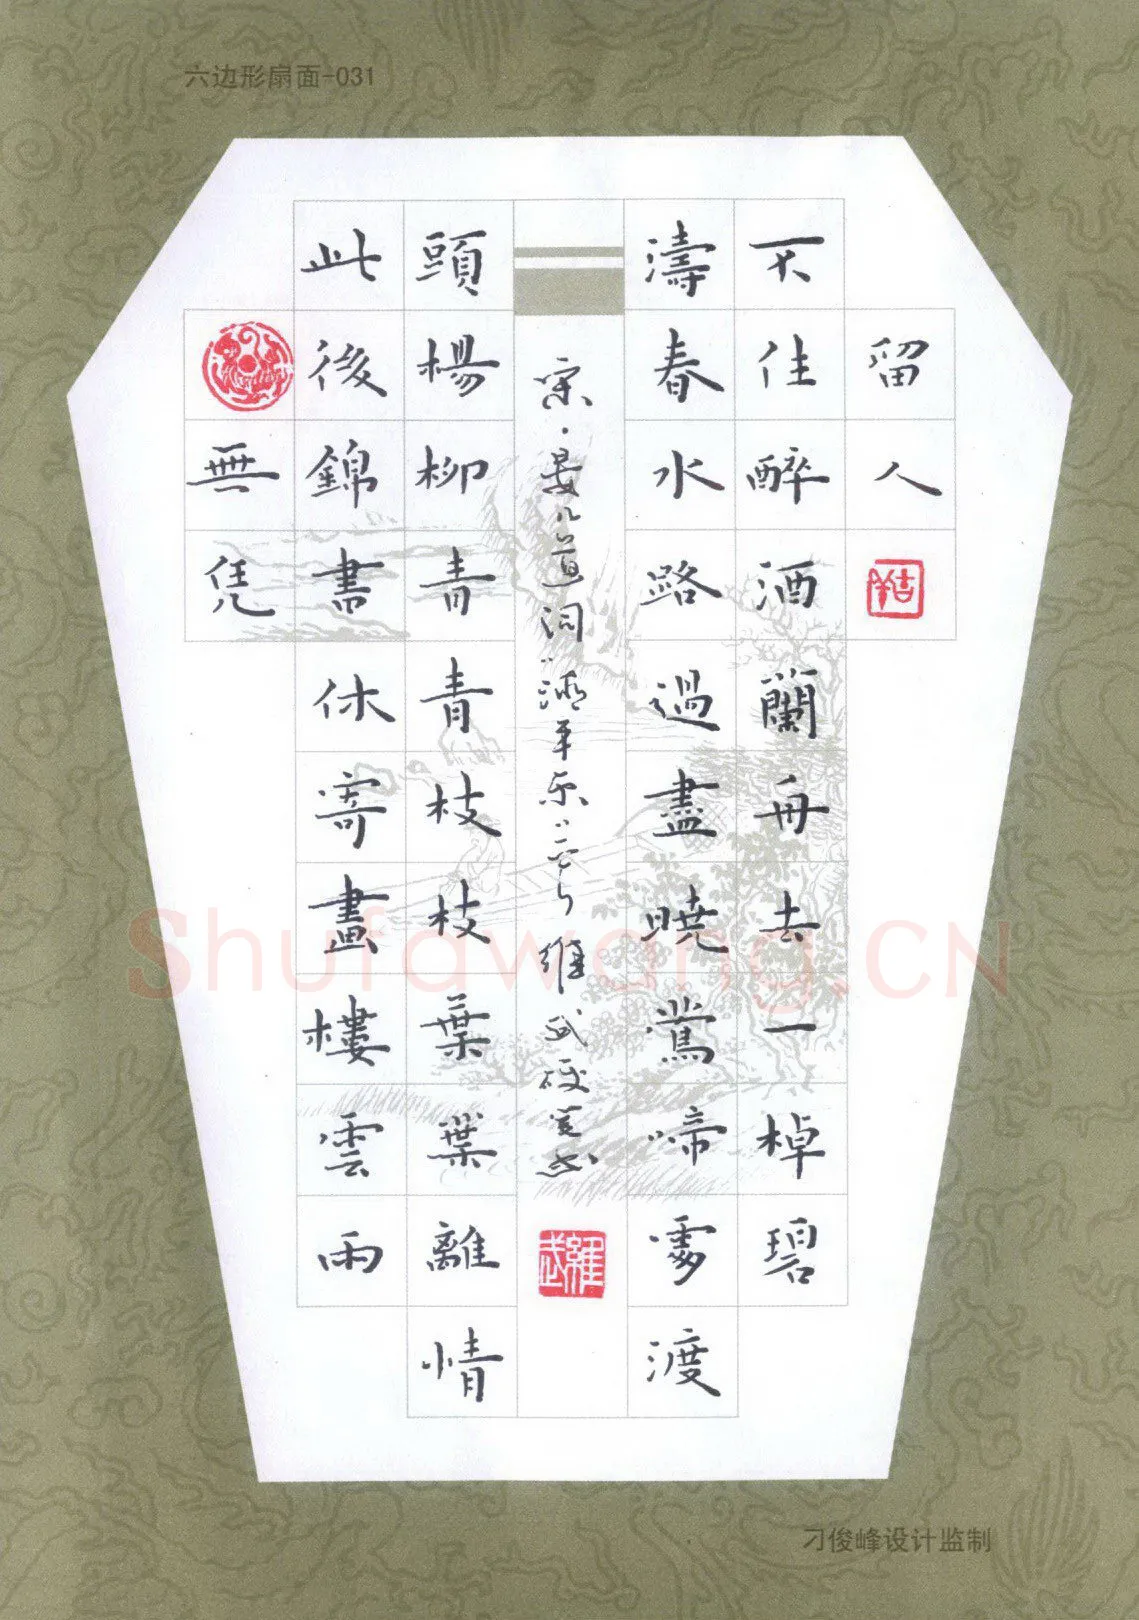 六边形扇面-031
留人
不住醉酒蘭舟去一棹碧
濤春水路過盡曉鶯啼處渡
宋·晏几道词"清平乐"
頭楊柳青青枝枝葉葉離情
此後錦書休寄畫樓雲雨
無凭
刁俊峰设计监制
Shufawang.CN